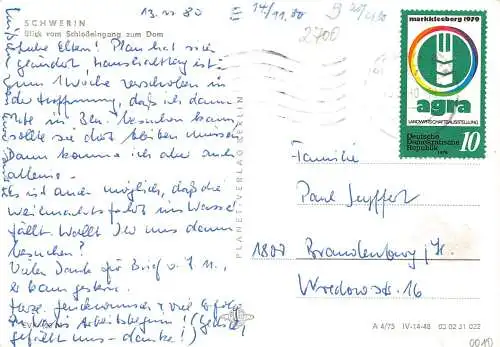 13.11.80
14/11.80
2700
SCHWERIN
Blick vom Schloßeingang zum Dom
Liebe Eltern! Plan hat sich
geändert. Haushaltstag ist
zum Woche verschoben in
der Hoffnung, daß ich dann
Ute in Bln. besuchen kann,
sollte sie dort bleiben müssen.
Dann komme ich aber auch
alleine.
Es ist auch möglich, daß die
Weihnachtsfahrt ins Wasser
fällt. Wollt Ihr uns dann
besuchen?
Vielen Dank für Brief v. 9.11.,
er kam gestern.
Herz. & viel Erfolg
Arbeitsbeginn!
gefällt uns - danke!)
PLANET-VERLAG BERLIN
markkleeberg 1979
agra
LANDWIRTSCHAFTSAUSSTELLUNG
Deutsche
Demokratische
Republik
10
1979
Familie
Paul Seyffert
1800 Brandenburg/H.
Wredowstr. 16
A 4/75 IV-14-48 03 02 31 022
0019